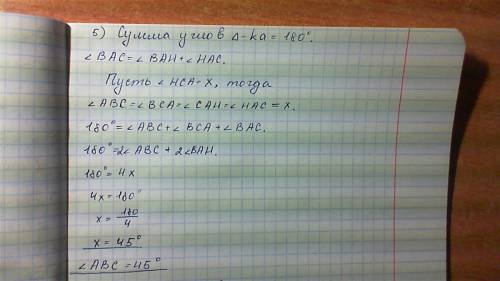 5) Сумма углов Δ-ka = 180°.
∠BAC=∠BAH+∠HAC.
Пусть ∠HCA=X, тогда
∠ABC=∠BCA=∠CAH=∠HAC=X.
180°=∠ABC+∠BCA+∠BAC.
180°=2∠ABC+2∠BAH.
180°=4x
4x=180°
x=180/4
x=45°
∠ABC=45°